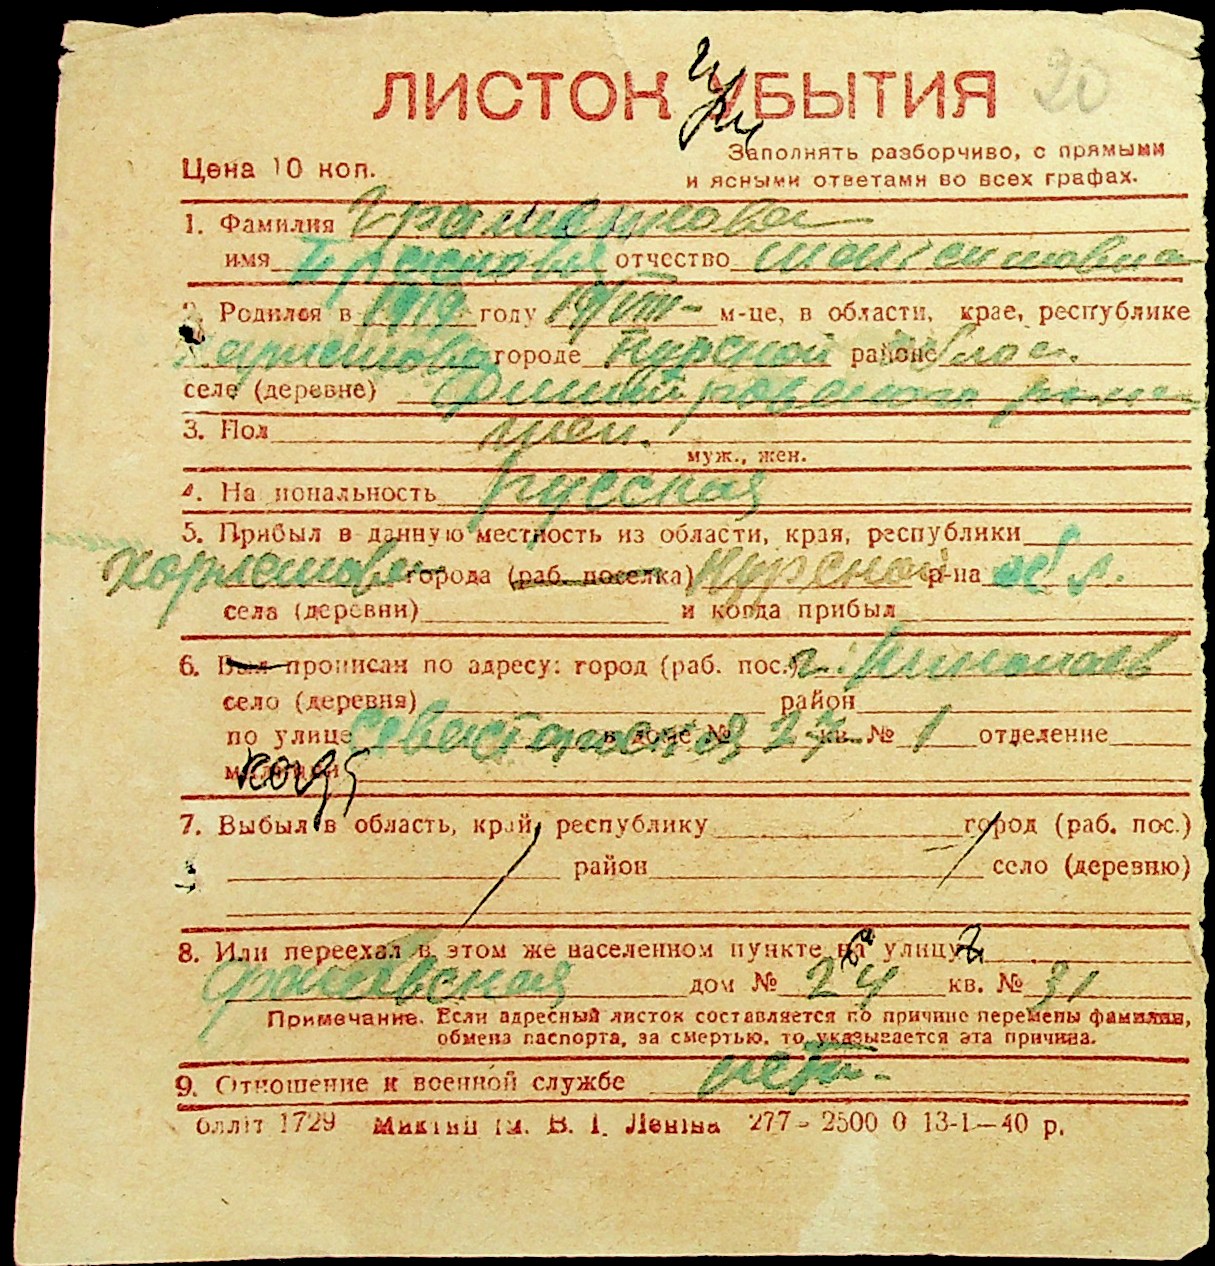 ЛИСТОК УБЫТИЯ 20
Цена 10 коп.
Заполнять разборчиво, с прямыми
и ясными ответами во всех графах.
1. Фамилия
имя отчество
2. Родился в 1919 году 19/VIII- м-це, в области, крае, республике
городе Курской районе облас.
селе (деревне) Дмитровского
3. Пол жен.
муж., жен.
4. Национальность русская
5. Прибыл в данную местность из области, края, республики
города (раб. поселка) Курской р-на обл.
села (деревни) и когда прибыл
6. Был прописан по адресу: город (раб. пос.) г. Николаев
село (деревня) район
по улице Севастопольская в доме № 27 кв. № 1 отделение
милиции
7. Выбыл в область, край, республику город (раб. пос.)
район село (деревню)
8. Или переехал в этом же населенном пункте на улицу
дом № 24 кв. № 31
Примечание. Если адресный листок составляется по причине перемены фамилии,
обмена паспорта, за смертью, то указывается эта причина.
9. Отношение к военной службе нет.
блліт 1729 Миктип ім. В. І. Леніна 277 - 2500 0 13-I-40 р.